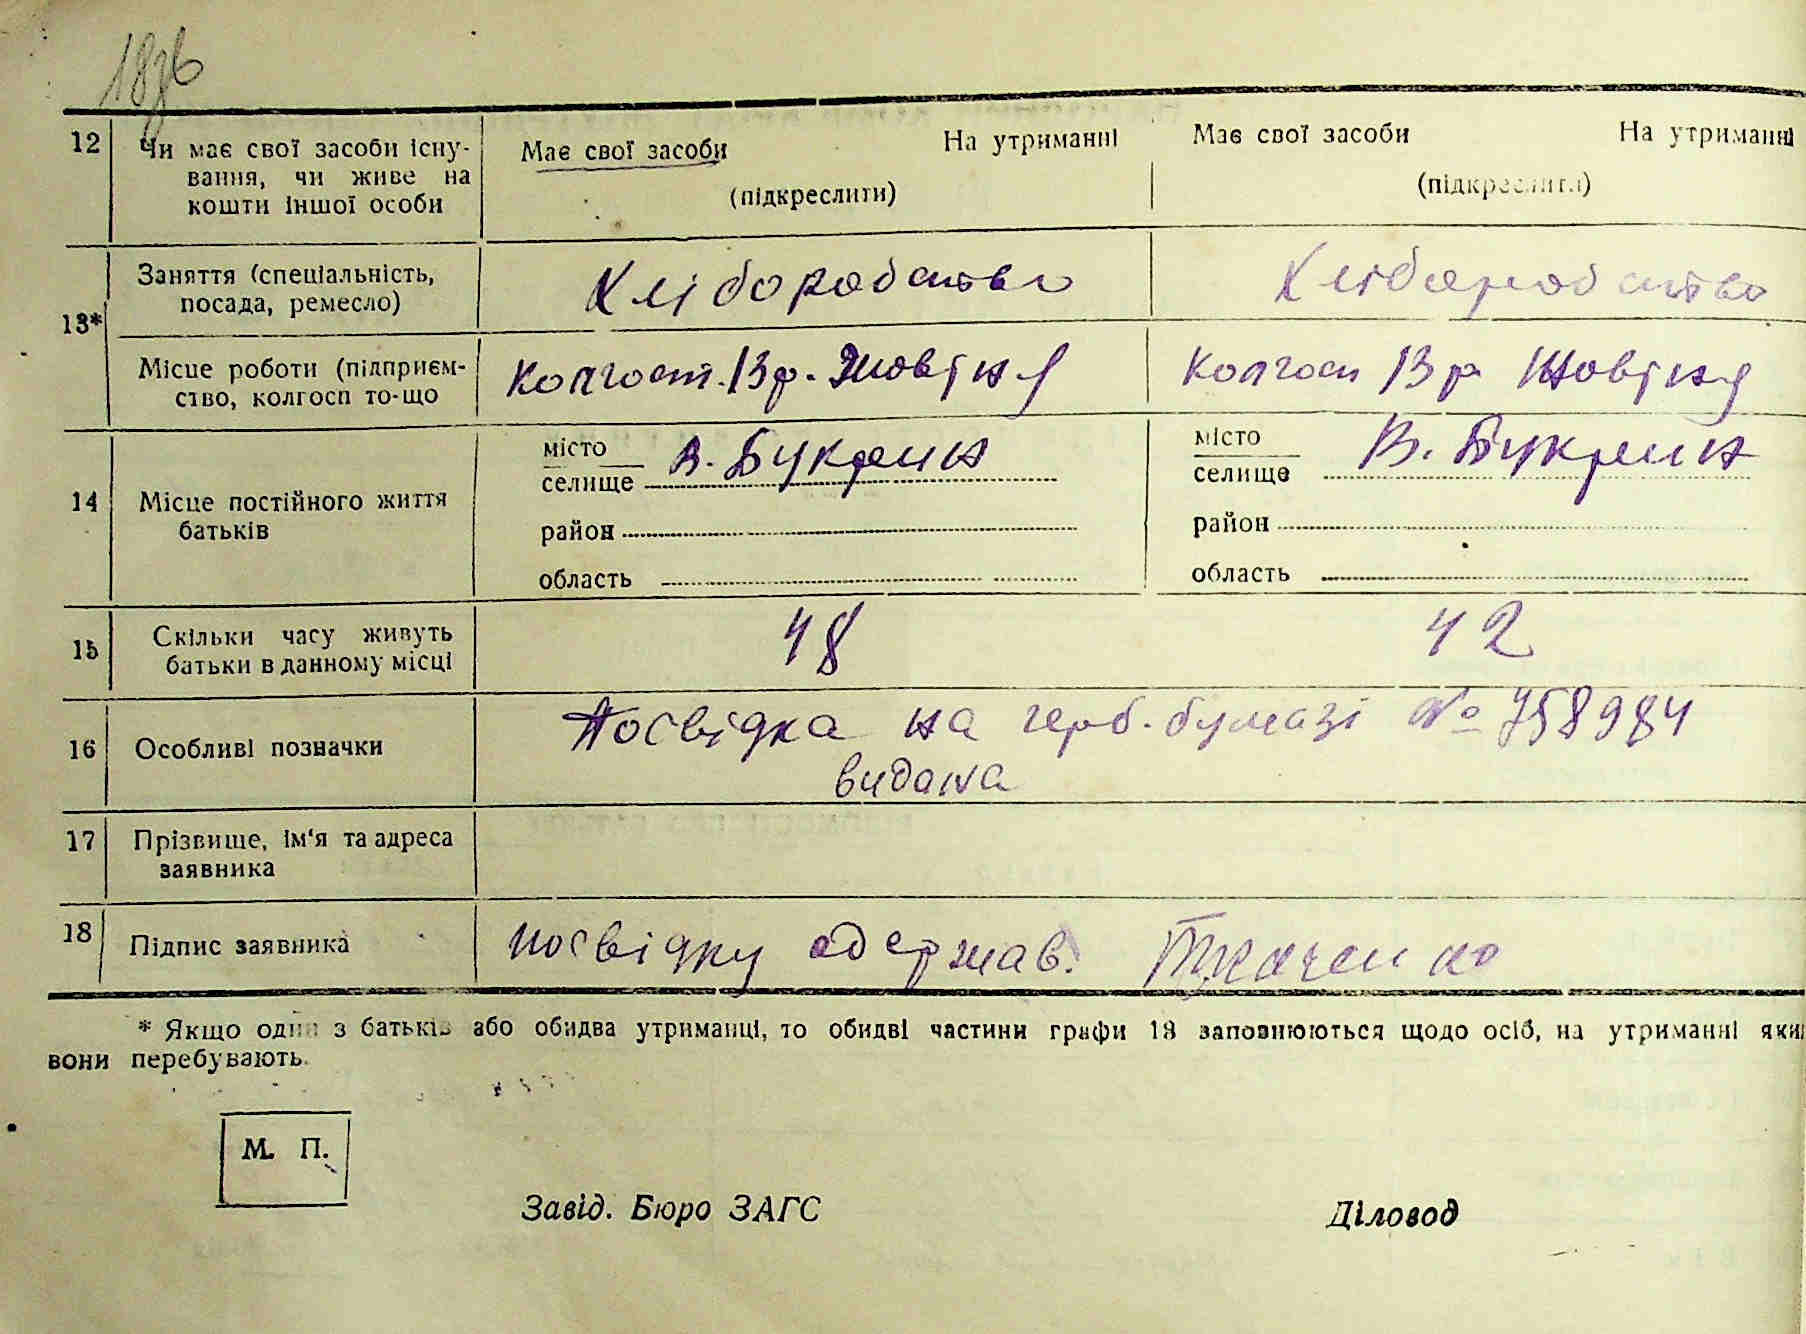 18зв
12 Чи має свої засоби існу- Має свої засоби На утриманні Має свої засоби На утриманні
вання, чи живе на (підкреслити) (підкреслити)
кошти іншої особи
13* Заняття (спеціальність, Хліборобство Хліборобство
посада, ремесло)
Місце роботи (підприєм- Колгосп. 13 р. Жовтня Колгосп 13 р Жовтня
ство, колгосп то-що
14 Місце постійного життя місто В. Букрин місто В. Букрин
батьків селище селище
район район
область область
15 Скільки часу живуть 48 42
батьки в данному місці
16 Особливі позначки Посвідка на герб. бумазі № 758984
видана
17 Прізвище, ім'я та адреса
заявника
18 Підпис заявника посвідку одержав. Ткаченко
* Якщо один з батьків або обидва утриманці, то обидві частини графи 13 заповнюються щодо осіб, на утриманні яких
вони перебувають.
М. П.
Завід. Бюро ЗАГС Діловод